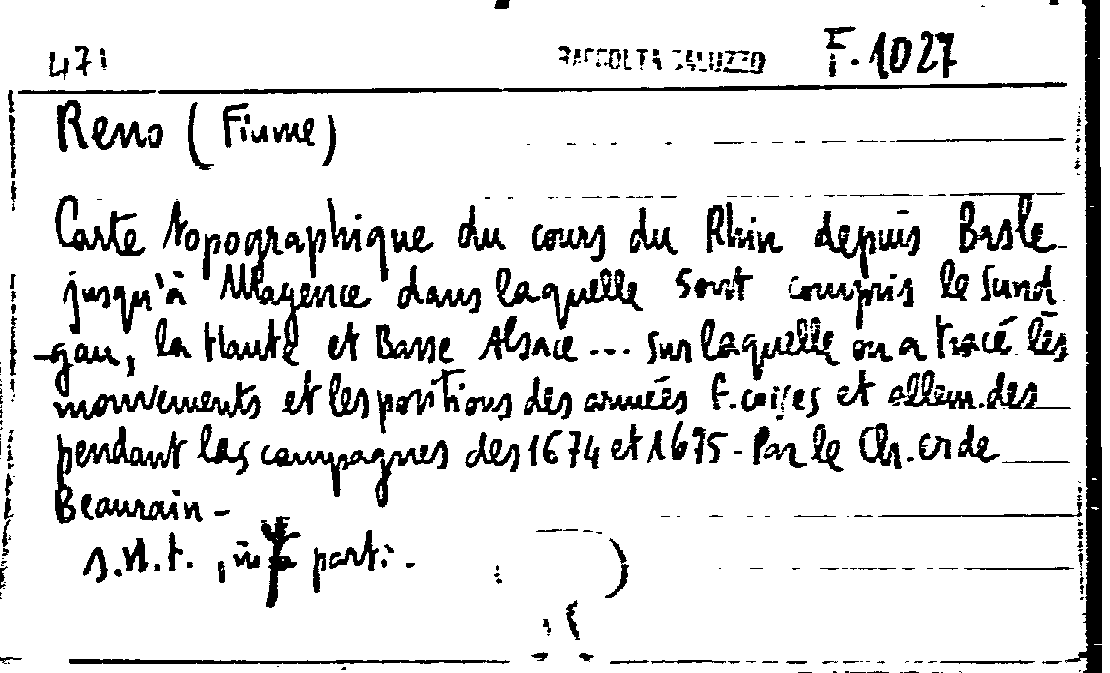 471 RACCOLTA SALUZZO F. 1027
Reno (Fiume)
Carte topographique du cours du Rhin depuis Basle
jusqu'à Mayence dans laquelle sont compris le Sund
-gau, la Haute et Basse Alsace... sur laquelle on a tracé les
mouvements et les positions des armées f.caises et allem.des
pendant les campagnes des 1674 et 1675 - Par le Ch.er de
Beaurain -
s.n.t., in parti.